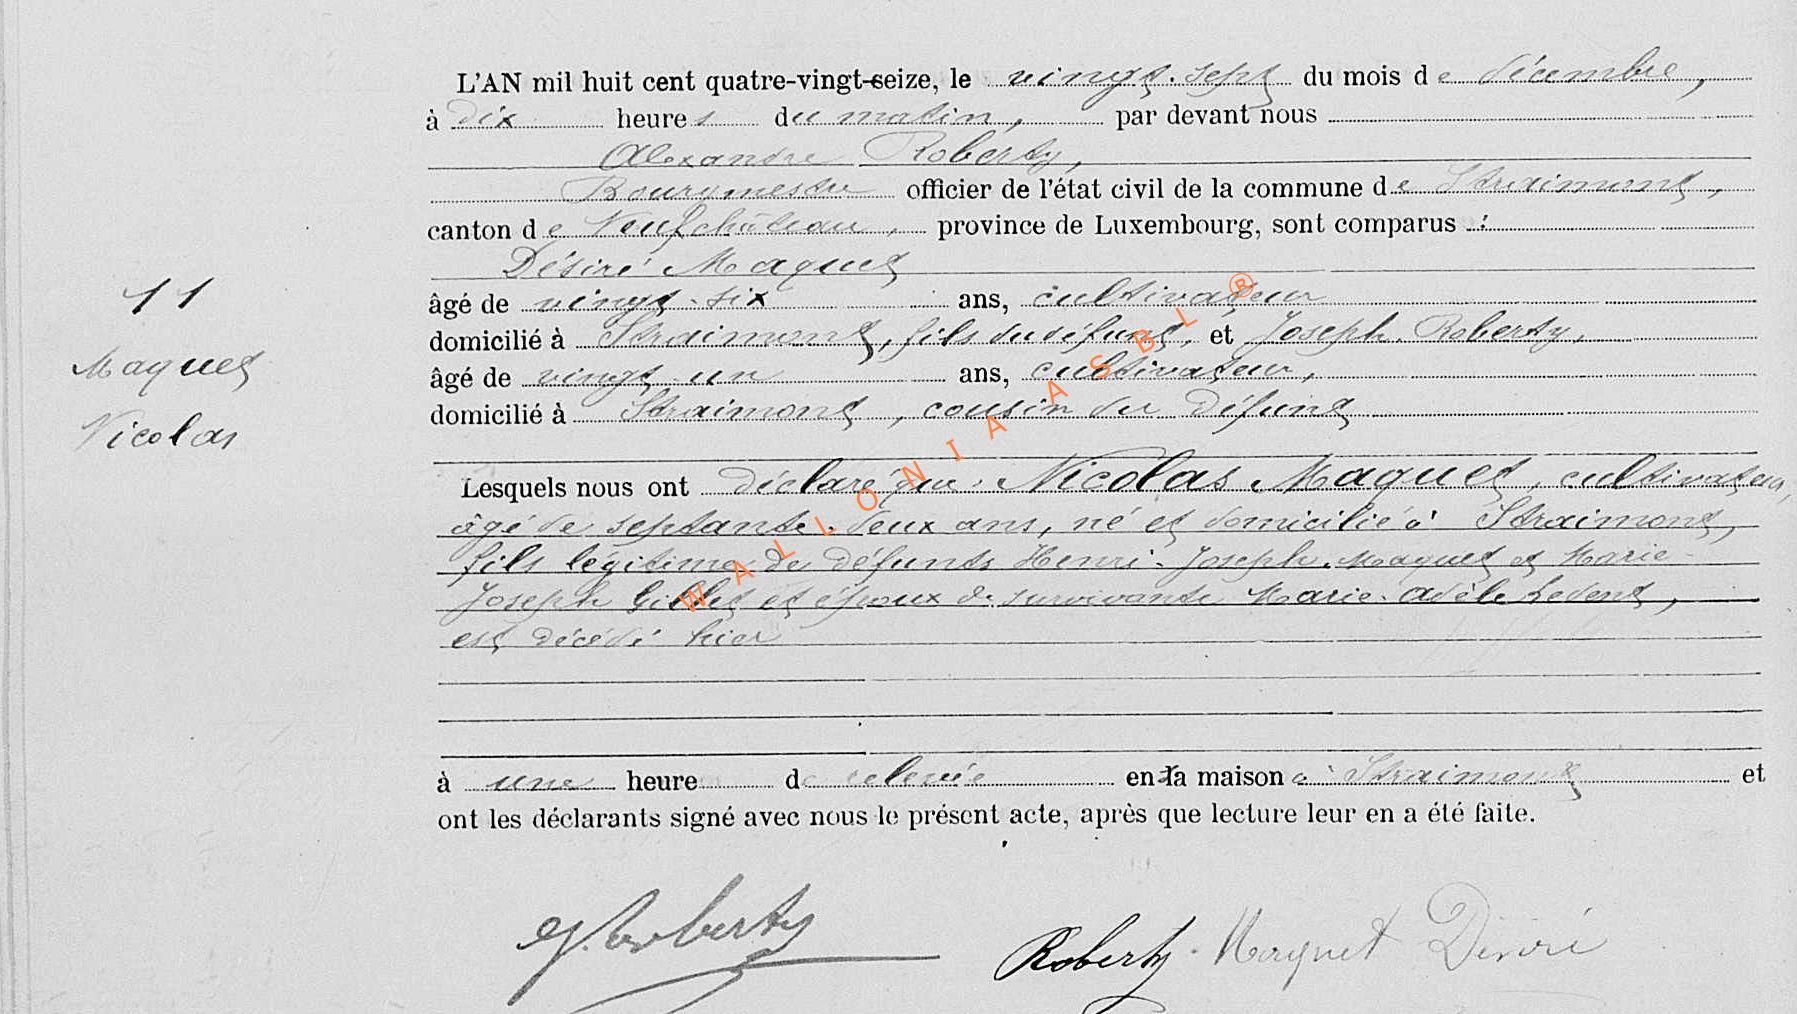 L'AN mil huit cent quatre-vingt-seize, le vingt-sept du mois de décembre,
à dix heures du matin, par devant nous
Alexandre Roberty,
Bourgmestre officier de l'état civil de la commune de Straimont,
canton de Neufchâteau, province de Luxembourg, sont comparus :
Désiré Maquet
âgé de vingt-six ans, cultivateur
domicilié à Straimont, fils du défunt, et Joseph Roberty,
âgé de vingt-un ans, cultivateur,
domicilié à Straimont, cousin du défunt
11
Maquet
Nicolas
Lesquels nous ont déclaré que Nicolas Maquet, cultivateur,
âgé de septante-deux ans, né et domicilié à Straimont,
fils légitime de défunts Henri-Joseph Maquet et Marie-
Joseph Gillet et époux de survivante Marie-Adèle Ledent,
est décédé hier
à une heure de relevée en la maison à Straimont et
ont les déclarants signé avec nous le présent acte, après que lecture leur en a été faite.
Roberty
Roberty
Maquet Désiré
WALLONIA ASBL ®